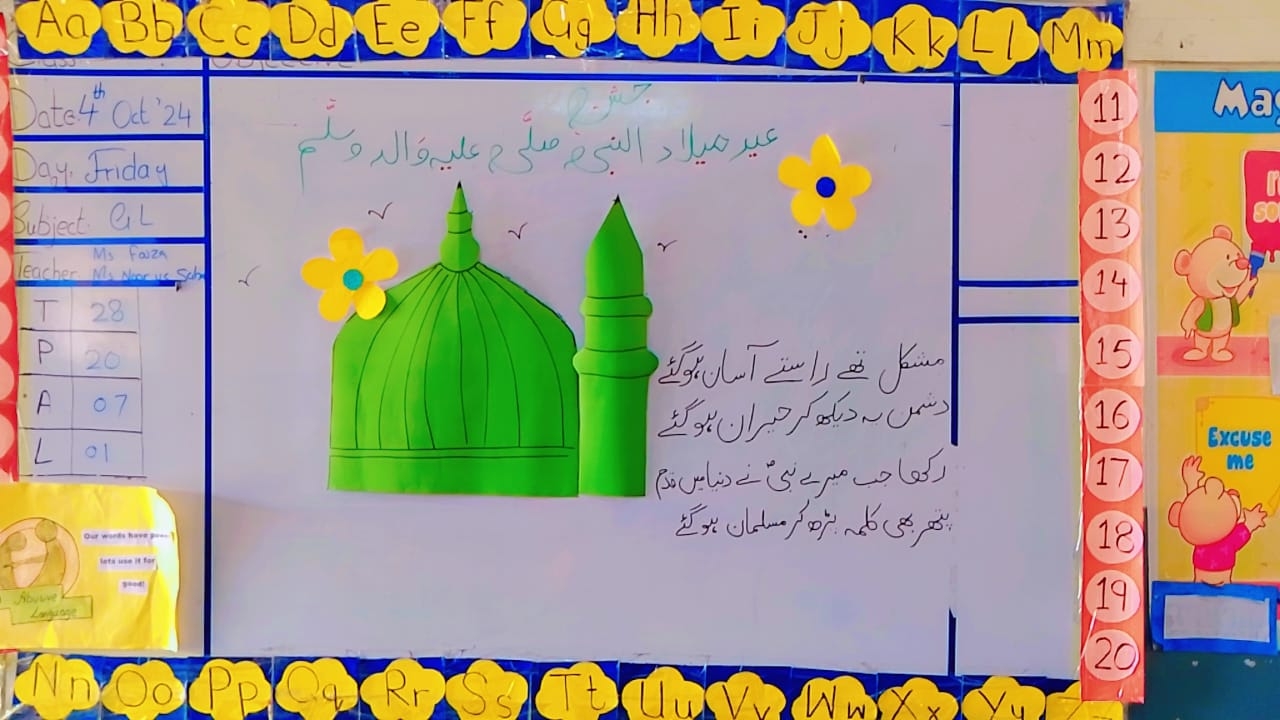 Aa Bb Cc Dd Ee Ff Gg Hh Ii Jj Kk Ll Mm
Objective
Date: 4th Oct '24
Day: Friday
Subject: GL
Teacher: Ms Faiza
T 28
P 20
A 07
L 01
جشنِ
عید میلاد النبی صلَّی علیہ وَالہ وسلَّم
مشکل تھے راستے آسان ہوگئے
دشمن یہ دیکھ کر حیران ہوگئے
رکھا جب میرے نبیؐ نے دنیا میں قدم
پتھر بھی کلمہ پڑھ کر مسلمان ہوگئے
Our words have
lets use it for
good!
Abusive
Language
11
12
13
14
15
16
17
18
19
20
Excuse
me
Nn Oo Pp Qq Rr Ss Tt Uu Vv Ww Xx Yy